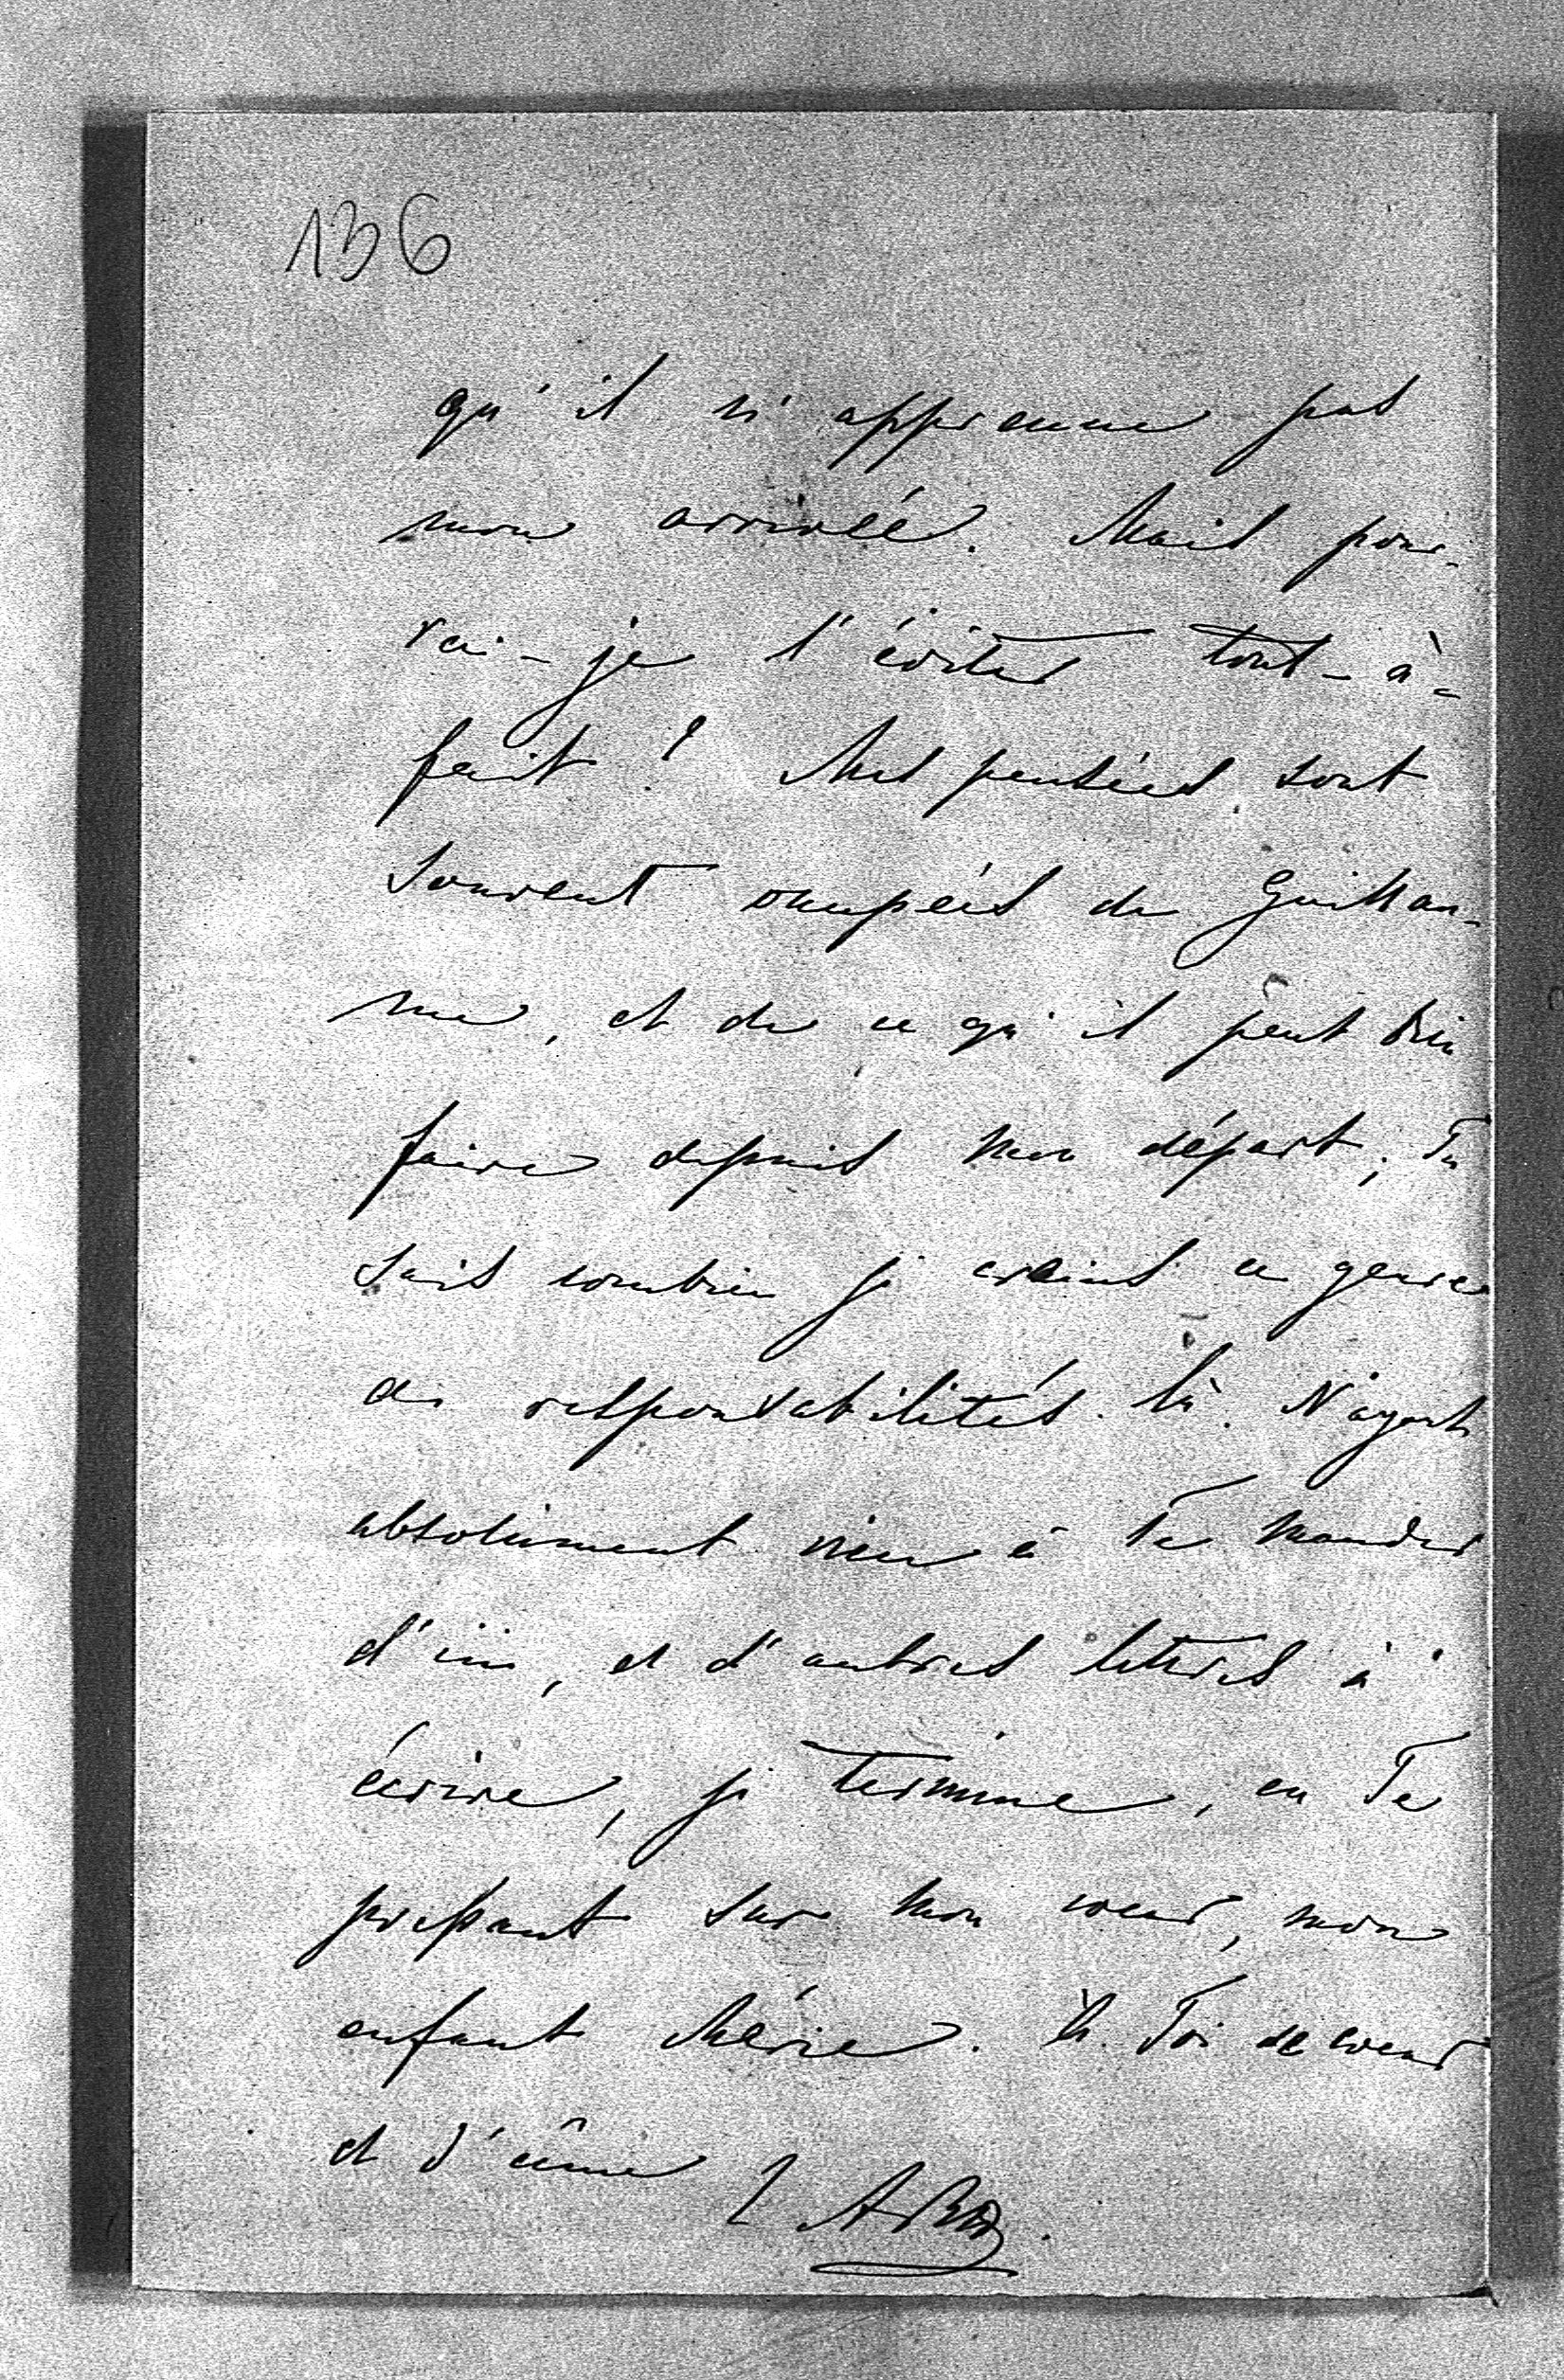 136
qu'il n'apprenne pas
mon arrivée. Mais pour-
rai-je l'éviter tout-à-
fait? Mes pensées sont
souvent occupées de Guillau-
me, et de ce qu'il peut bien
faire depuis mon départ; Tu
sais combien je crains ce genre
de responsabilités-là. N'ayant
absolument rien à Te mander
d'ici, et d'autres lettres à
écrire, je termine, en Te
pressant sur mon coeur, mon
enfant chérie. à Toi de coeur
et d'âme